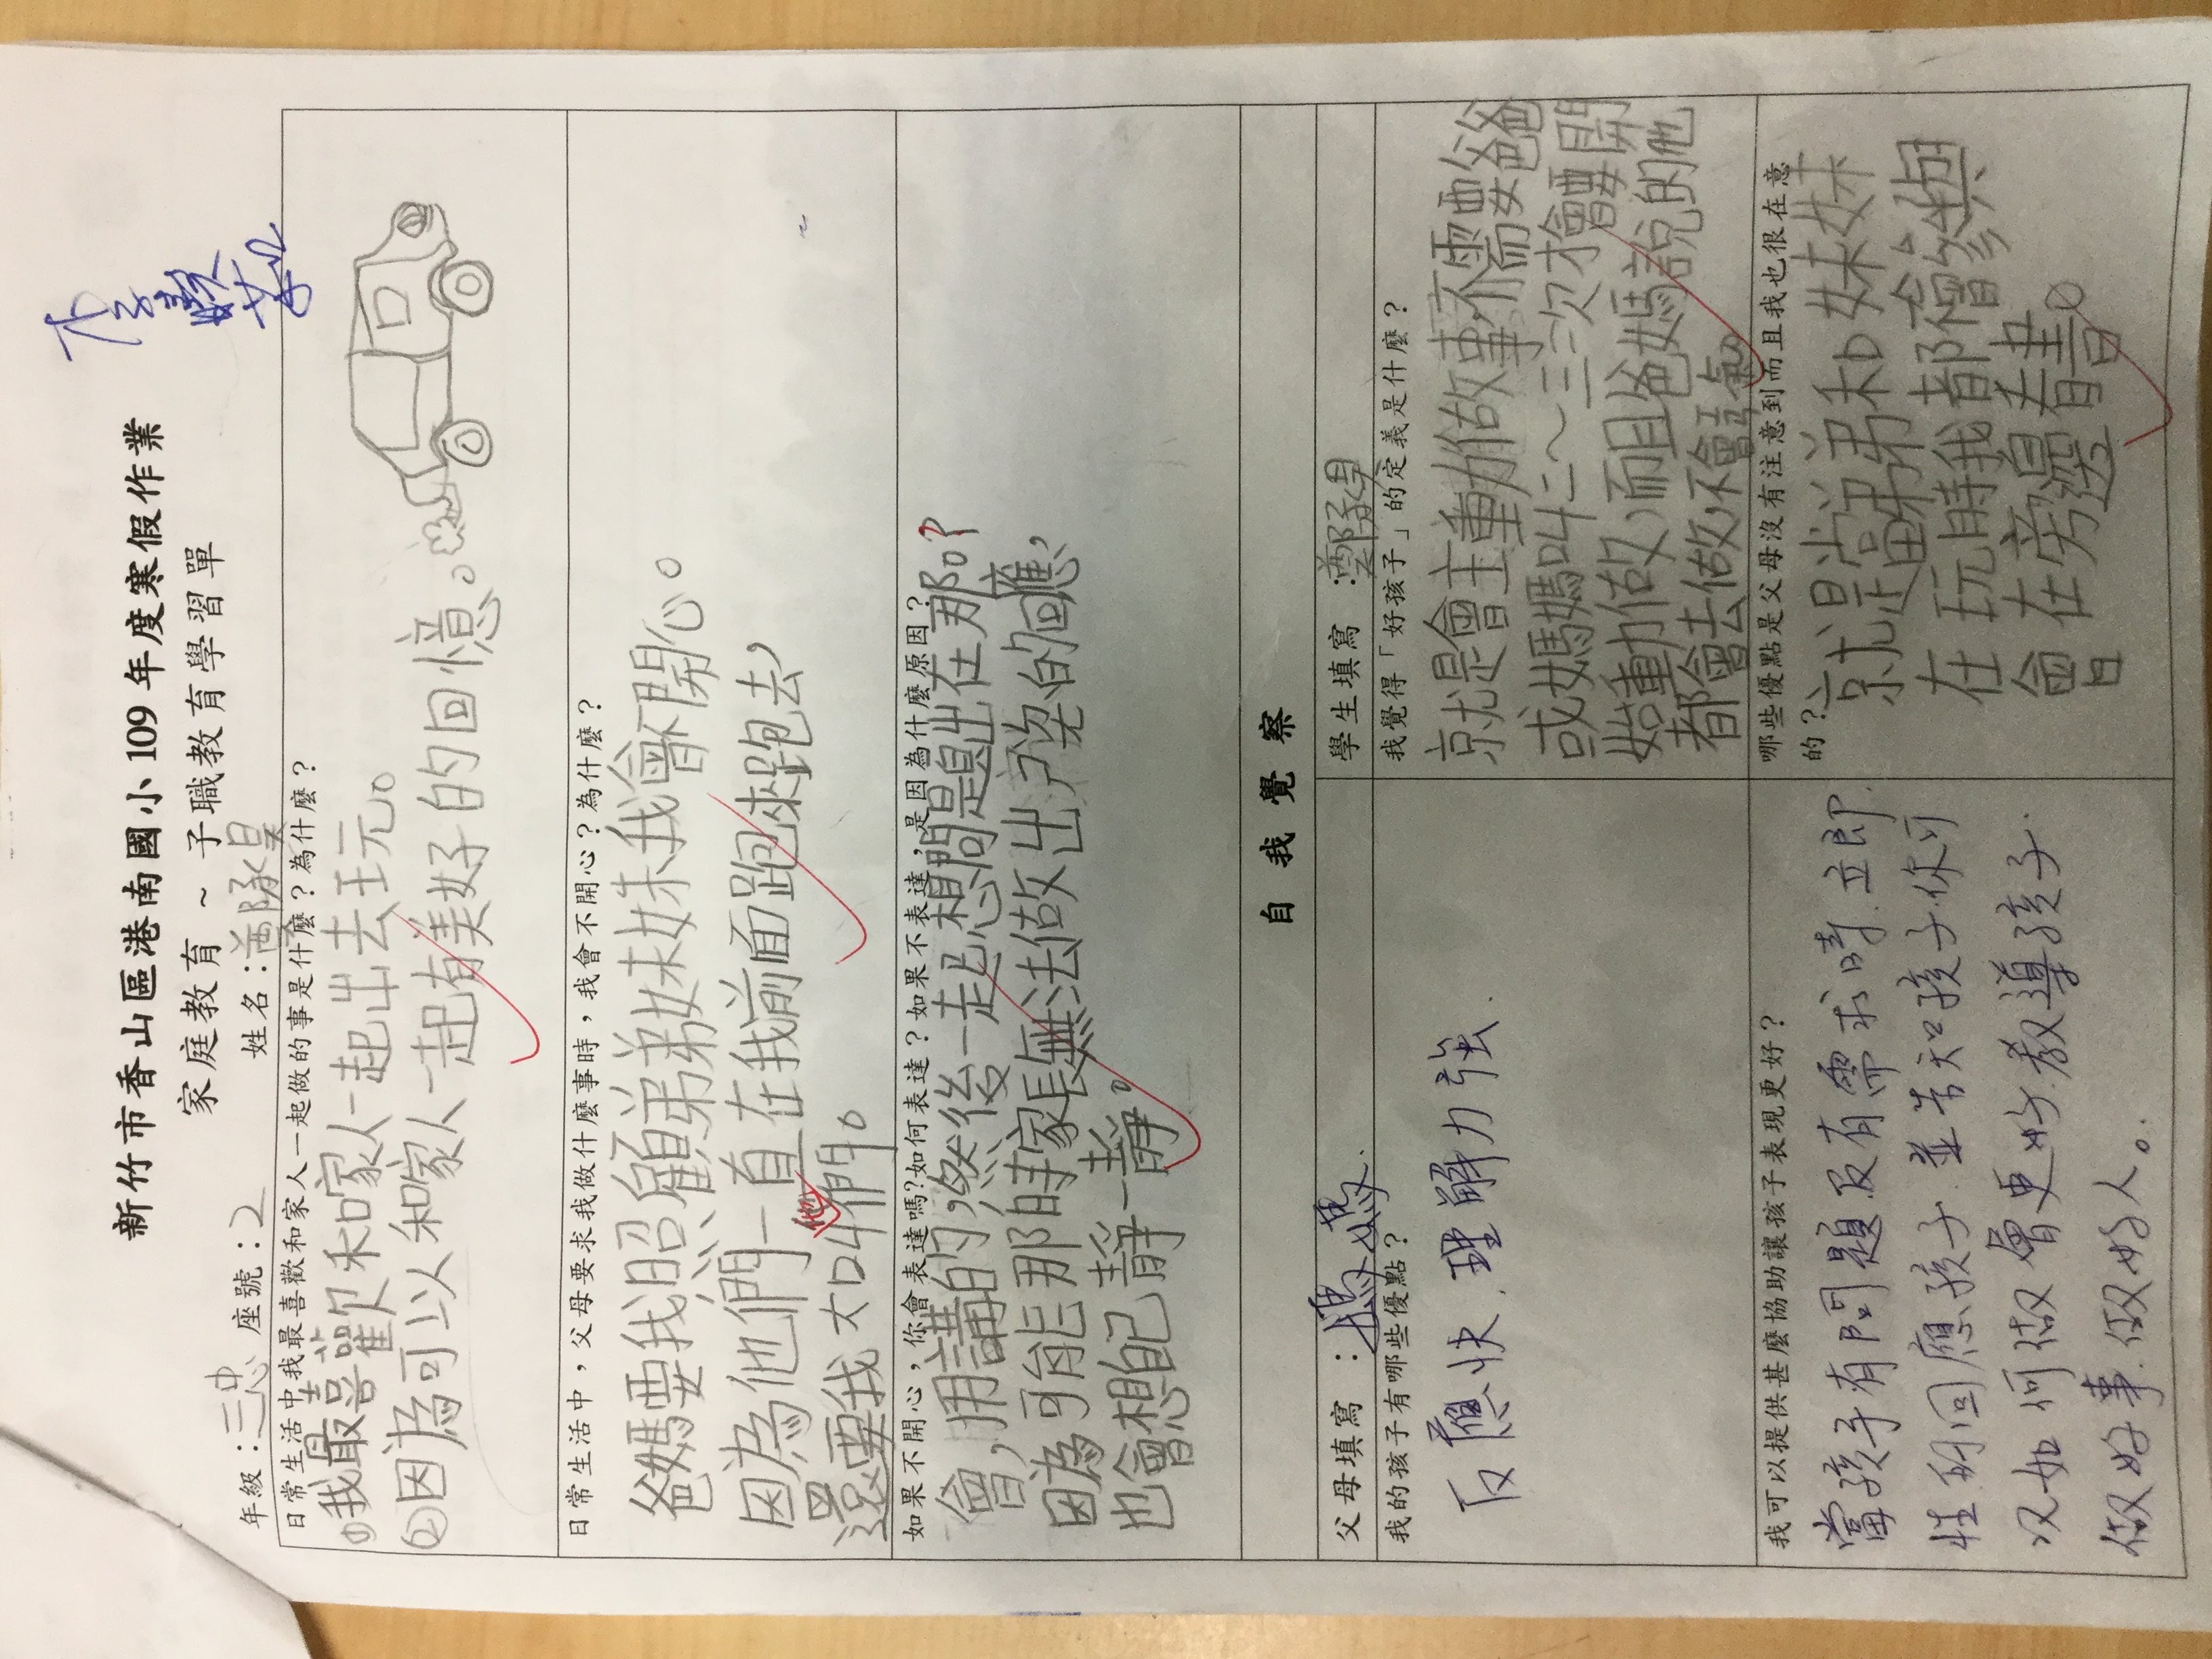 新竹市香山區港南國小109年度寒假作業
家庭教育~子職教育學習單
年級：三忠 座號：2 姓名：鄭承昊
日常生活中我最喜歡和家人一起做的事是什麼？為什麼？
(1)我最喜歡和家人一起出去玩。
(2)因為可以和家人一起有美好的回憶。
日常生活中，父母要求我做什麼事時，我會不開心？為什麼？
爸媽要我照顧弟弟妹妹我會不開心。
因為他們一直在我前面跑來跑去，
還要我大叫他們。
如果不開心，你會表達嗎?如何表達？如果不表達，是因為什麼原因？
會，用講的，然後一起想問題出在那。
因為可能那時家長無法做出我的回應，
也會想自己靜一靜。
自我覺察
父母填寫：
學生填寫：鄭承昊
我的孩子有哪些優點？
反應快.理解力強.
我覺得「好孩子」的定義是什麼？
就是會主動做事，不需要爸爸
或媽媽叫二~三次才會要開
始動做，而且爸媽說的他
都會去做，不會生氣。
我可以提供甚麼協助讓孩子表現更好？
當孩子有問題及有需求時.立即
性的回應孩子.並告知孩子你可
以如何做會更好.教導孩子.
做好事.做好人。
哪些優點是父母沒有注意到而且我也很在意
的？
就是當弟弟和妹妹
在玩時我都不會參與
會在旁邊看書。